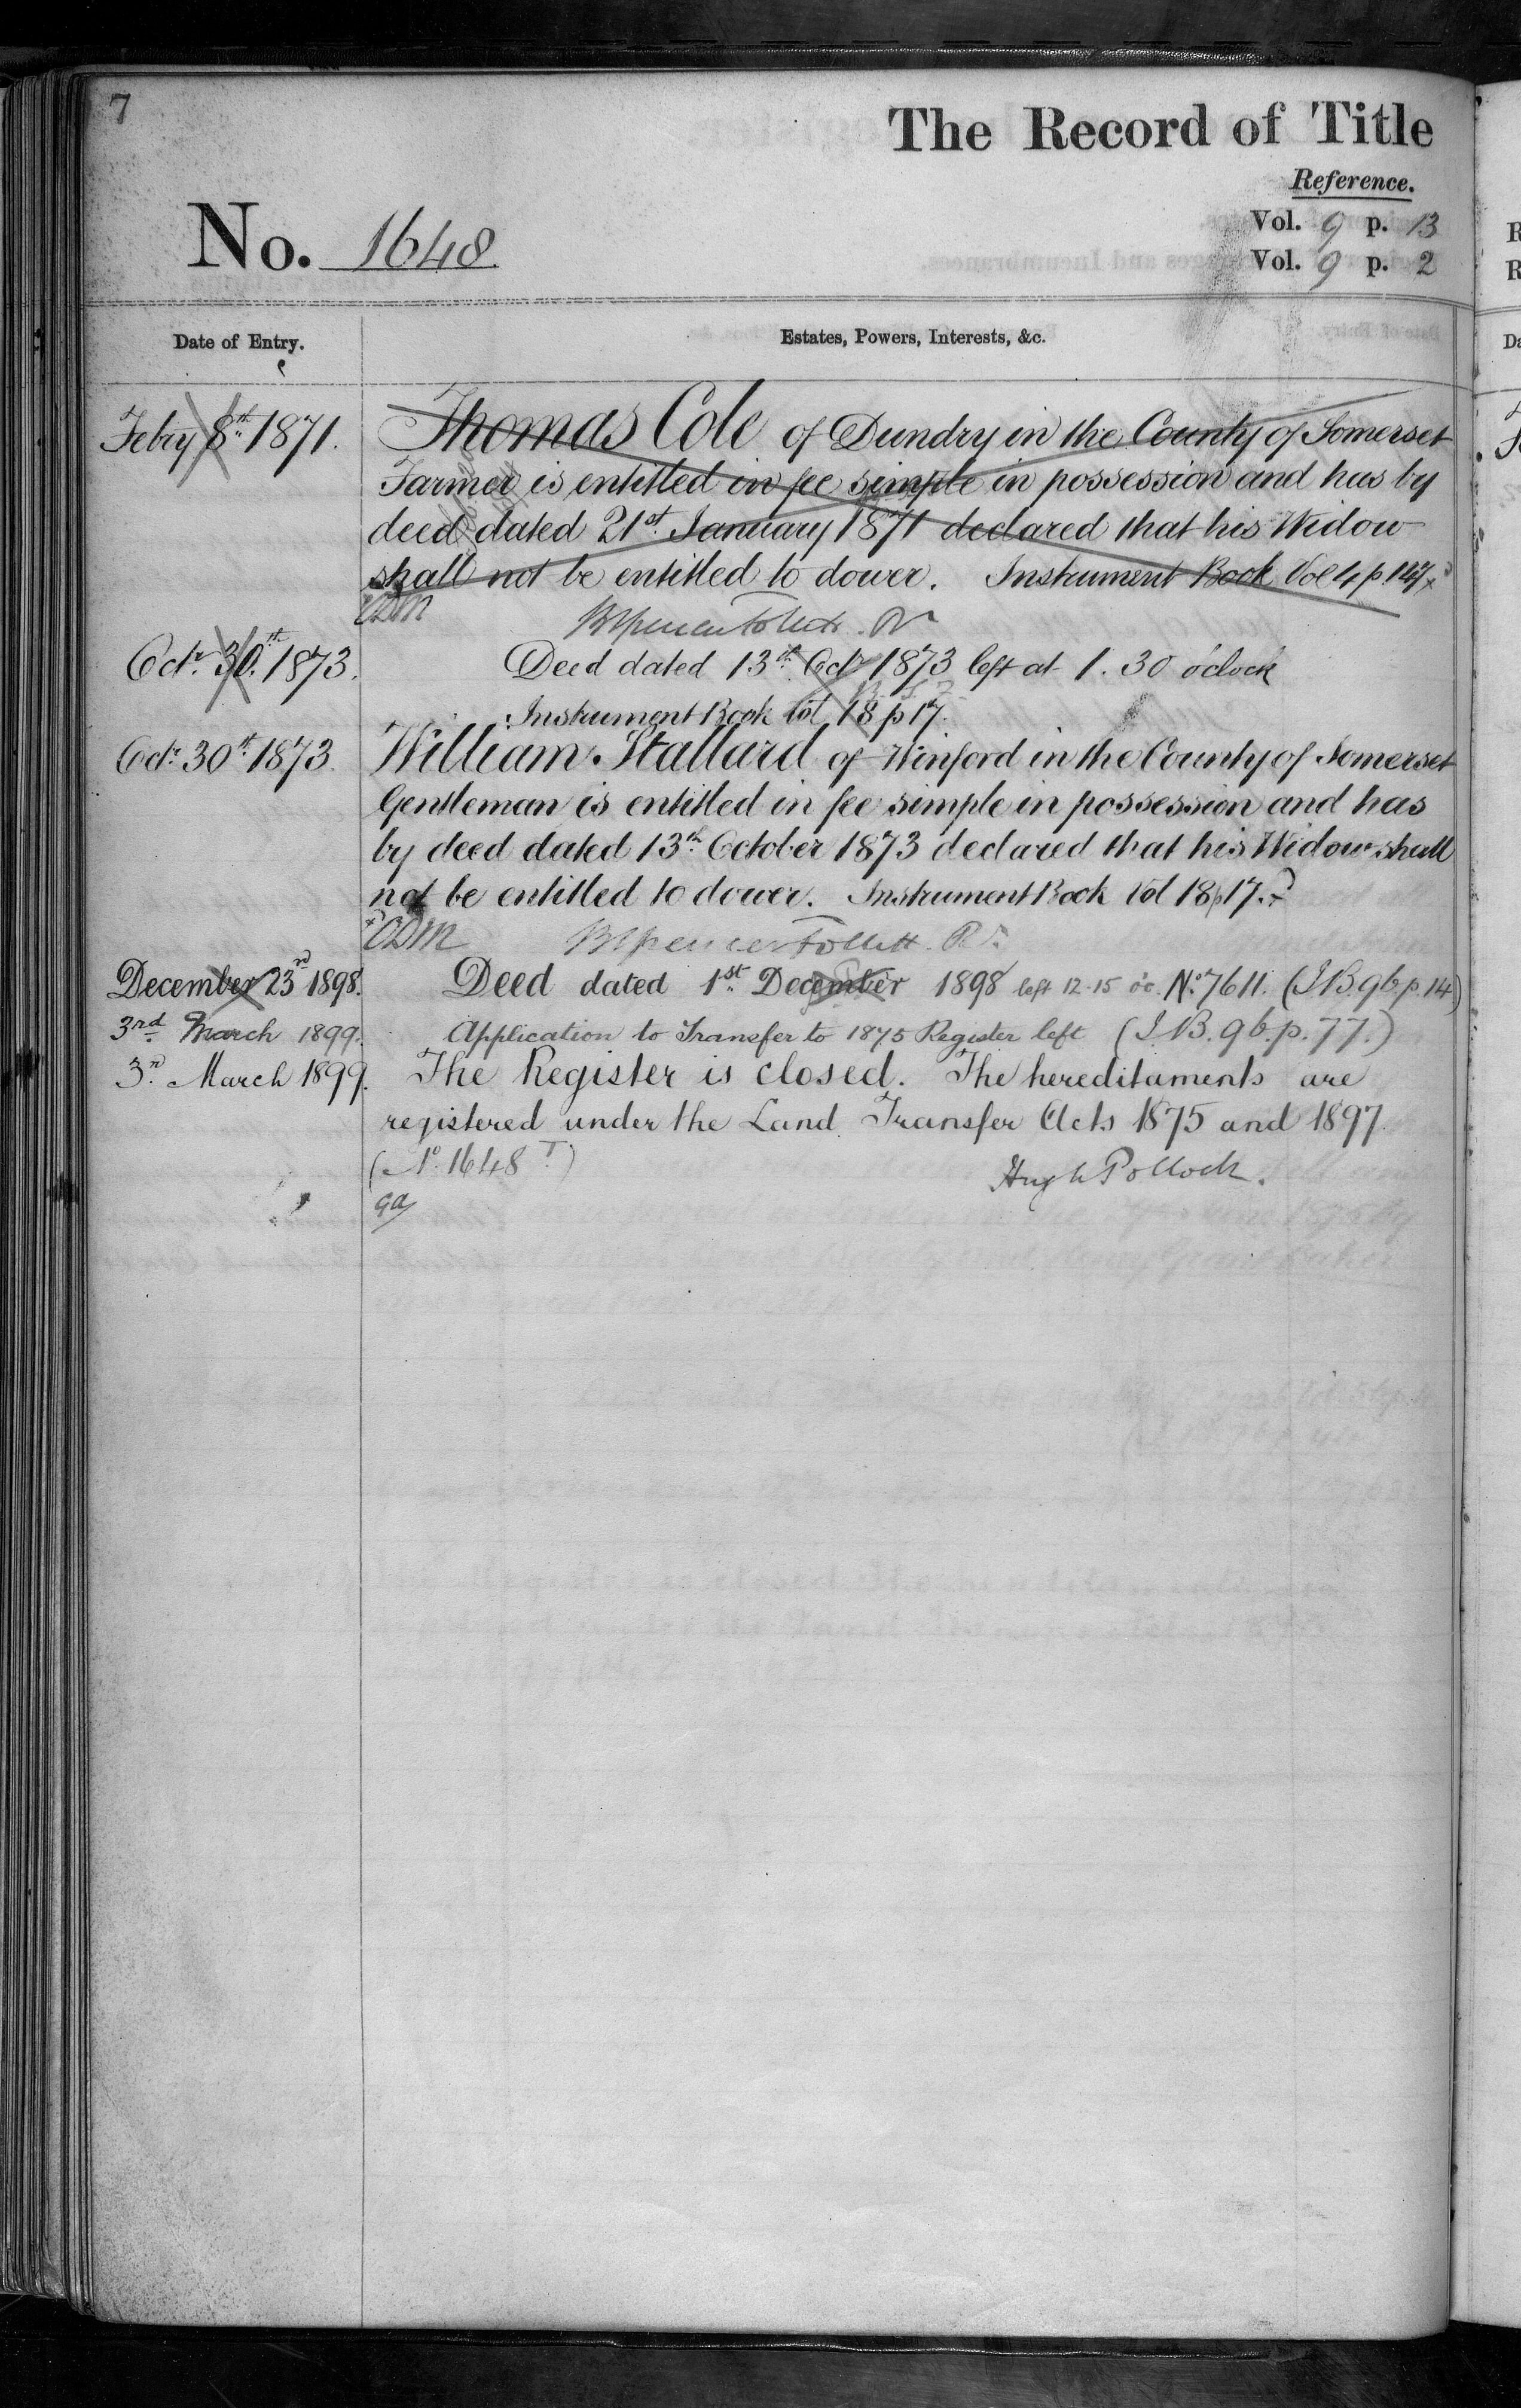 7
The Record of Title
Reference.
No. 1648.
Vol. 9 p. 13
Vol. 9 p. 2
Date of Entry.
Estates, Powers, Interests, &c.
Febry 8th 1871.
Thomas Cole of Dundry in the County of Somerset
Farmer is entitled in fee simple in possession and has by
deed dated 21st January 1871 declared that his Widow
shall not be entitled to dower. Instrument Book Vol 4 p. 147
CDM
BSpencer Follett. Rr
Octr 30th 1873.
Deed dated 13th Octr 1873 left at 1.30 o'clock
Instrument Book Vol 18 p 17.
Octr 30th 1873.
William Stallard of Winford in the County of Somerset
Gentleman is entitled in fee simple in possession and has
by deed dated 13th October 1873 declared that his Widow shall
not be entitled to dower. Instrument Book Vol 18 p 17.
CDM
BSpencer Follett. Rr.
December 23rd 1898.
Deed dated 1st December 1898 left 12.15 o'c. No. 7611. (I.B. 96. p. 14)
3rd March 1899.
Application to Transfer to 1875 Register left (I.B. 96. p. 77.)
3rd March 1899.
The Register is closed. The hereditaments are
registered under the Land Transfer Acts 1875 and 1897.
(No. 1648 T)
Hugh Pollock.